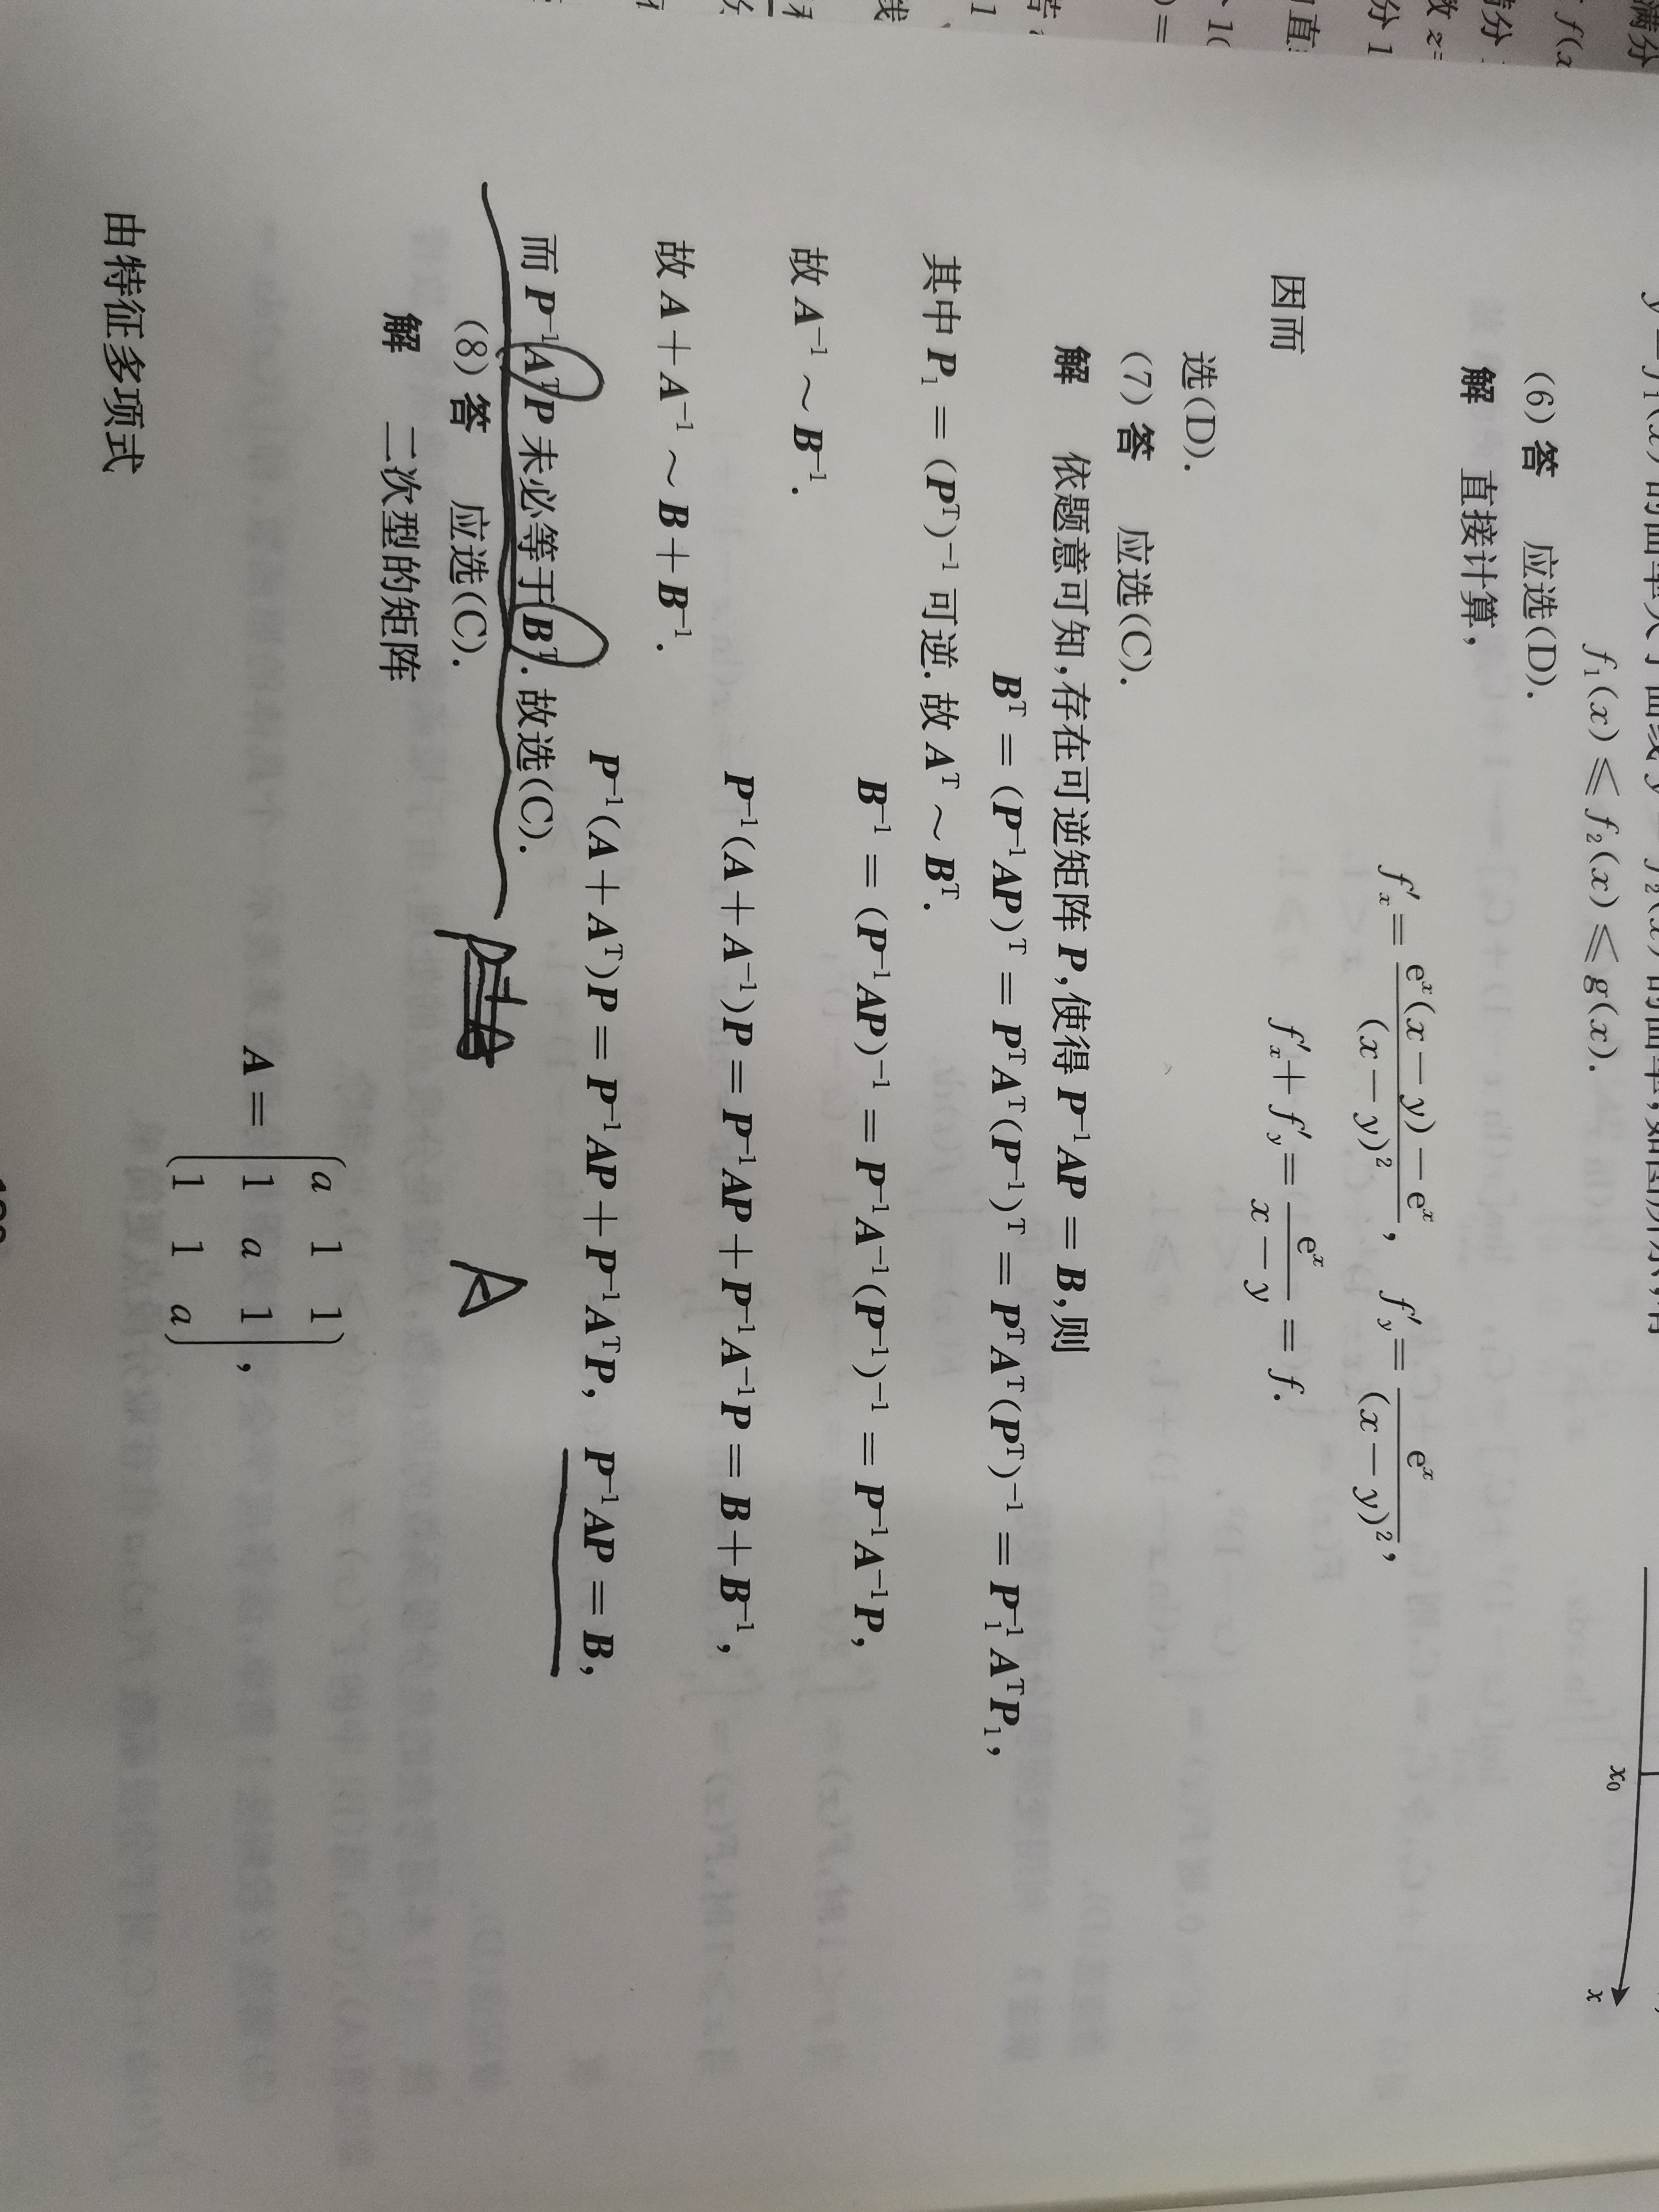 f₁(x)≤f₂(x)≤g(x).
(6) 答 应选(D).
解 直接计算,
f′ₓ=\frac{eˣ(x−y)−eˣ}{(x−y)²}, f′_y=\frac{eˣ}{(x−y)²},
因而 f′ₓ+f′_y=\frac{eˣ}{x−y}=f.
选(D).
(7) 答 应选(C).
解 依题意可知,存在可逆矩阵 P,使得 P⁻¹AP=B,则
Bᵀ=(P⁻¹AP)ᵀ=PᵀAᵀ(P⁻¹)ᵀ=PᵀAᵀ(Pᵀ)⁻¹=P₁⁻¹AᵀP₁,
其中 P₁=(Pᵀ)⁻¹ 可逆. 故 Aᵀ～Bᵀ.
B⁻¹=(P⁻¹AP)⁻¹=P⁻¹A⁻¹(P⁻¹)⁻¹=P⁻¹A⁻¹P,
故 A⁻¹～B⁻¹.
P⁻¹(A+A⁻¹)P=P⁻¹AP+P⁻¹A⁻¹P=B+B⁻¹,
故 A+A⁻¹～B+B⁻¹.
P⁻¹(A+Aᵀ)P=P⁻¹AP+P⁻¹AᵀP, P⁻¹AP=B,
而 P⁻¹AᵀP 未必等于 Bᵀ. 故选(C).
A
(8) 答 应选(C).
解 二次型的矩阵
a 1 1
A= 1 a 1 ,
1 1 a
由特征多项式
x₀
x